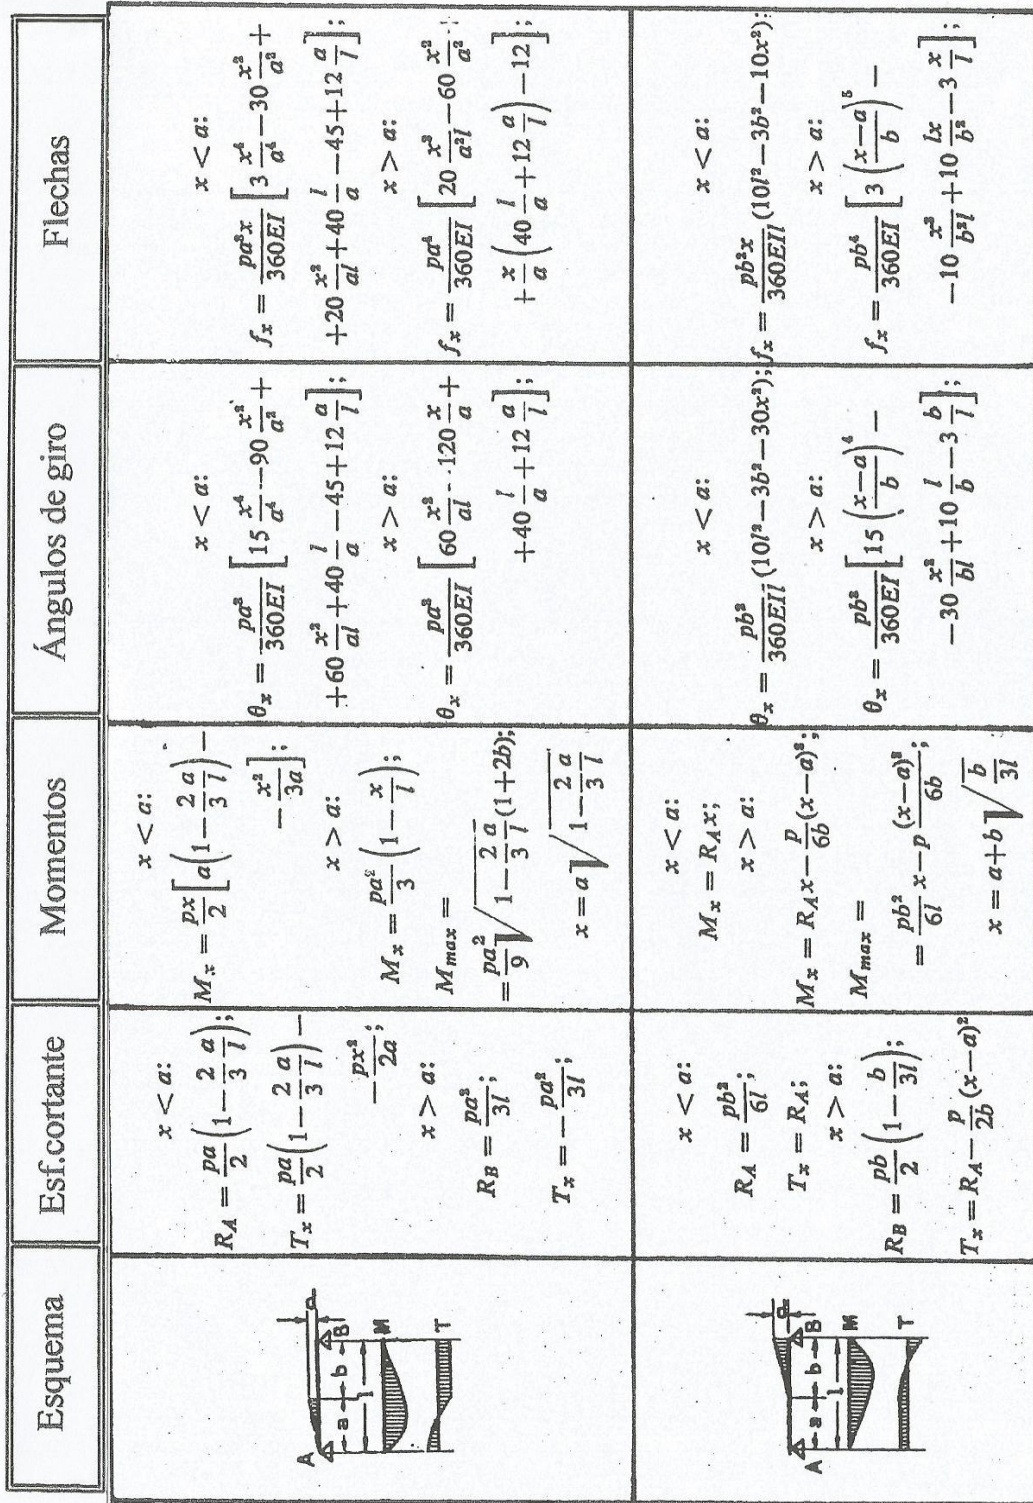 Esquema
Esf.cortante
Momentos
Ángulos de giro
Flechas
A
B
a
b
l
M
T
x < a:
R_A = \frac{pa}{2}\left(1-\frac{2}{3}\frac{a}{l}\right);
T_x = \frac{pa}{2}\left(1-\frac{2}{3}\frac{a}{l}\right)-
-\frac{px^2}{2a};
x > a:
R_B = \frac{pa^2}{3l};
T_x = -\frac{pa^2}{3l};
x < a:
M_x = \frac{px}{2}\left[a\left(1-\frac{2}{3}\frac{a}{l}\right)-
-\frac{x^2}{3a}\right];
x > a:
M_x = \frac{pa^2}{3}\left(1-\frac{x}{l}\right);
M_{max} =
= \frac{pa^2}{9}\sqrt{1-\frac{2}{3}\frac{a}{l}}(1+2b);
x = a\sqrt{1-\frac{2}{3}\frac{a}{l}}
x < a:
\theta_x = \frac{pa^3}{360EI}\left[15\frac{x^4}{a^4}-90\frac{x^2}{a^2}+
+60\frac{x^2}{al}+40\frac{l}{a}-45+12\frac{a}{l}\right];
x > a:
\theta_x = \frac{pa^3}{360EI}\left[60\frac{x^2}{al}-120\frac{x}{a}+
+40\frac{l}{a}+12\frac{a}{l}\right];
x < a:
f_x = \frac{pa^3x}{360EI}\left[3\frac{x^4}{a^4}-30\frac{x^2}{a^2}+
+20\frac{x^2}{al}+40\frac{l}{a}-45+12\frac{a}{l}\right];
x > a:
f_x = \frac{pa^4}{360EI}\left[20\frac{x^3}{a^2l}-60\frac{x^2}{a^2}+
+\frac{x}{a}\left(40\frac{l}{a}+12\frac{a}{l}\right)-12\right];
A
B
a
b
l
M
T
x < a:
R_A = \frac{pb^2}{6l};
T_x = R_A;
x > a:
R_B = \frac{pb}{2}\left(1-\frac{b}{3l}\right);
T_x = R_A-\frac{p}{2b}(x-a)^2
x < a:
M_x = R_Ax;
x > a:
M_x = R_Ax-\frac{p}{6b}(x-a)^3;
M_{max} =
= \frac{pb^2}{6l}x-p\frac{(x-a)^3}{6b};
x = a+b\sqrt{\frac{b}{3l}}
x < a:
\theta_x = \frac{pb^2}{360EIl}(10l^2-3b^2-30x^2);
x > a:
\theta_x = \frac{pb^3}{360EI}\left[15\left(\frac{x-a}{b}\right)^4-
-30\frac{x^2}{bl}+10\frac{l}{b}-3\frac{b}{l}\right];
x < a:
f_x = \frac{pb^2x}{360EIl}(10l^2-3b^2-10x^2);
x > a:
f_x = \frac{pb^4}{360EI}\left[3\left(\frac{x-a}{b}\right)^5-
-10\frac{x^3}{b^2l}+10\frac{lx}{b^2}-3\frac{x}{l}\right];